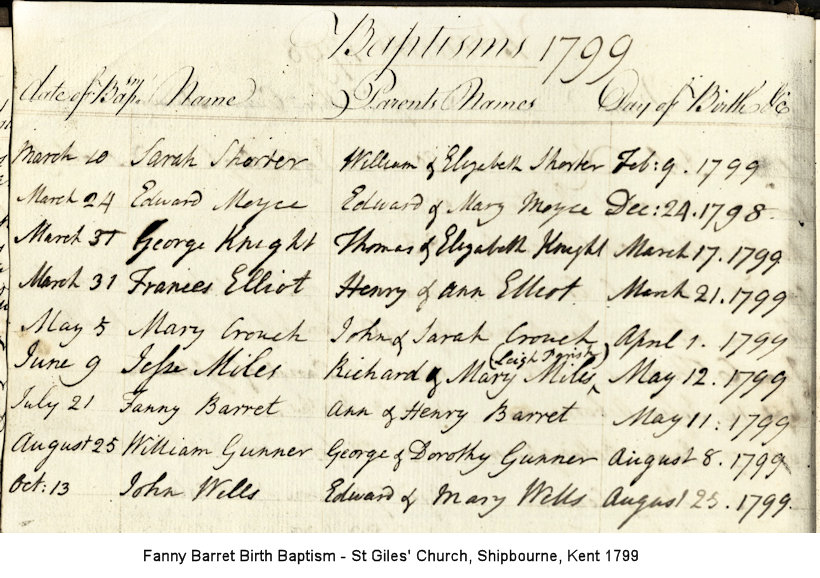 Baptisms 1799
date of Bapsm Name Parents Names Day of Birth &c
March 10 Sarah Shorter William & Elizabeth Shorter Feb: 9. 1799
March 24 Edward Moyce Edward & Mary Moyce Dec: 24. 1798
March 31 George Knight Thomas & Elizabeth Knight March 17. 1799
March 31 Frances Elliot Henry & Ann Elliot March 21. 1799
May 5 Mary Crouch John & Sarah Crouch April 1. 1799
(Leigh Parish)
June 9 Jesse Miles Richard & Mary Miles ^ May 12. 1799
July 21 Fanny Barret Ann & Henry Barret May 11: 1799
August 25 William Gunner George & Dorothy Gunner August 8. 1799
Oct: 13 John Wells Edward & Mary Wells August 25. 1799.
Fanny Barret Birth Baptism - St Giles' Church, Shipbourne, Kent 1799